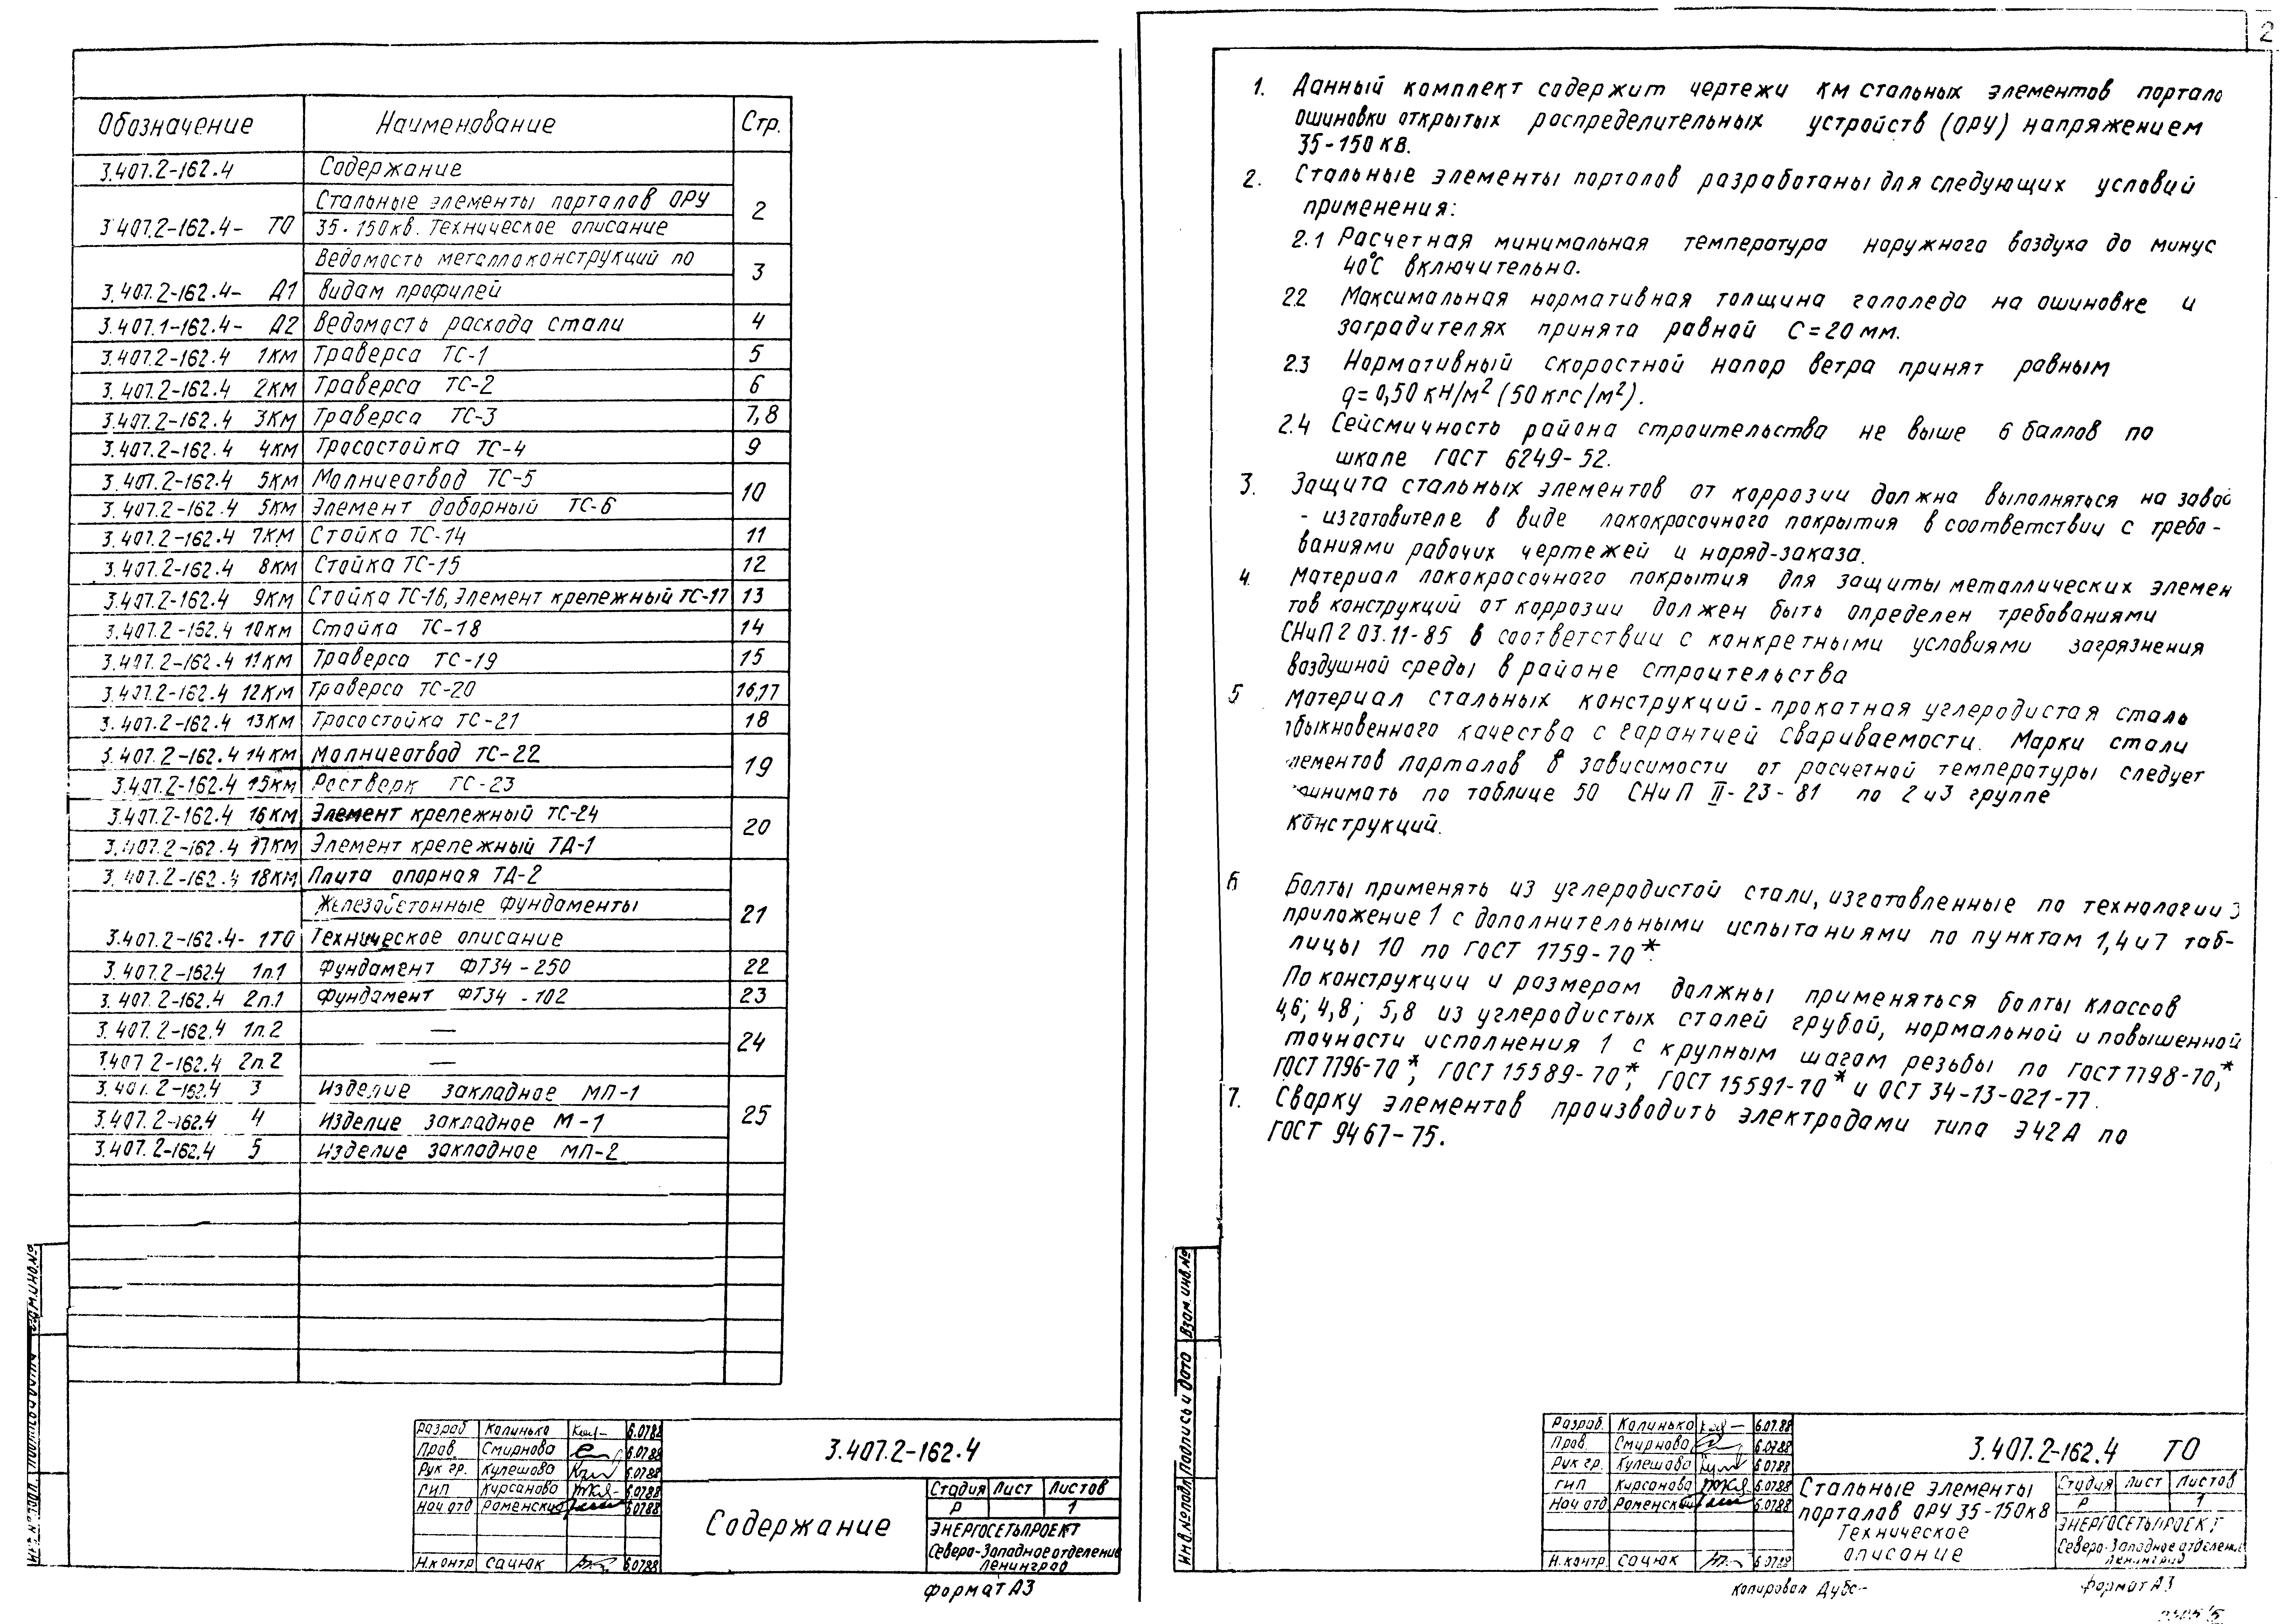 Обозначение Наименование Стр.
3.407.2-162.4 Содержание
Стальные элементы порталов ОРУ 2
3.407.2-162.4- ТО 35-150кв. Техническое описание
Ведомость металлоконструкций по 3
3.407.2-162.4- Д1 видам профилей
3.407.1-162.4- Д2 Ведомость расхода стали 4
3.407.2-162.4 1КМ Траверса ТС-1 5
3.407.2-162.4 2КМ Траверса ТС-2 6
3.407.2-162.4 3КМ Траверса ТС-3 7,8
3.407.2-162.4 4КМ Тросостойка ТС-4 9
3.407.2-162.4 5КМ Молниеотвод ТС-5 10
3.407.2-162.4 5КМ Элемент доборный ТС-6
3.407.2-162.4 7КМ Стойка ТС-14 11
3.407.2-162.4 8КМ Стойка ТС-15 12
3.407.2-162.4 9КМ Стойка ТС-16, Элемент крепежный ТС-17 13
3.407.2-162.4 10КМ Стойка ТС-18 14
3.407.2-162.4 11КМ Траверса ТС-19 15
3.407.2-162.4 12КМ Траверса ТС-20 16,17
3.407.2-162.4 13КМ Тросостойка ТС-21 18
3.407.2-162.4 14КМ Молниеотвод ТС-22 19
3.407.2-162.4 15КМ Ростверк ТС-23
3.407.2-162.4 16КМ Элемент крепежный ТС-24 20
3.407.2-162.4 17КМ Элемент крепежный ТД-1
3.407.2-162.4 18КМ Плита опорная ТД-2
Железобетонные фундаменты 21
3.407.2-162.4- 1ТО Техническое описание
3.407.2-162.4 1п.1 Фундамент ФТ34-250 22
3.407.2-162.4 2п.1 Фундамент ФТ34-102 23
3.407.2-162.4 1п.2 — 24
3.407.2-162.4 2п.2 —
3.407.2-162.4 3 Изделие закладное МП-1
3.407.2-162.4 4 Изделие закладное М-1 25
3.407.2-162.4 5 Изделие закладное МП-2
Разраб Калинько 6.0788
Пров. Смирнова 6.0788
Рук гр. Кулешова 6.0788
ГИП Курсанова 6.0788
Нач.отд Роменский 6.0788
Н.контр Сацюк 6.0788
3.407.2-162.4
Содержание
Стадия Лист Листов
Р 1
ЭНЕРГОСЕТЬПРОЕКТ
Северо-Западное отделение
Ленинград
формат А3
2
1. Данный комплект содержит чертежи КМ стальных элементов портало
ошиновки открытых распределительных устройств (ОРУ) напряжением
35-150 кв.
2. Стальные элементы порталов разработаны для следующих условий
применения:
2.1 Расчетная минимальная температура наружного воздуха до минус
40°С включительно.
2.2 Максимальная нормативная толщина гололеда на ошиновке и
заградителях принята равной С=20 мм.
2.3 Нормативный скоростной напор ветра принят равным
q=0,50 кН/м² (50 кгс/м²).
2.4 Сейсмичность района строительства не выше 6 баллов по
шкале ГОСТ 6249-52.
3. Защита стальных элементов от коррозии должна выполняться на заво
- изготовителе в виде лакокрасочного покрытия в соответствии с требо-
ваниями рабочих чертежей и наряд-заказа.
4. Материал лакокрасочного покрытия для защиты металлических элемен
тов конструкций от коррозии должен быть определен требованиями
СНиП 2 03.11-85 в соответствии с конкретными условиями загрязнения
воздушной среды в районе строительства
5 Материал стальных конструкций - прокатная углеродистая сталь
обыкновенного качества с гарантией свариваемости. Марки стали
лементов порталов в зависимости от расчетной температуры следует
инимать по таблице 50 СНиП II-23-81 по 2 и 3 группе
конструкций.
6 Болты применять из углеродистой стали, изготовленные по технологии 3
приложение 1 с дополнительными испытаниями по пунктам 1,4 и 7 таб-
лицы 10 по ГОСТ 1759-70*
По конструкции и размерам должны применяться болты классов
4,6; 4,8; 5,8 из углеродистых сталей грубой, нормальной и повышенной
точности исполнения 1 с крупным шагом резьбы по ГОСТ 7798-70,*
ГОСТ 7796-70*, ГОСТ 15589-70*, ГОСТ 15591-70* и ОСТ 34-13-021-77.
7. Сварку элементов производить электродами типа Э42А по
ГОСТ 9467-75.
Инв.№подл Подпись и дата Взам.инв.№
Разраб. Калинько 6.07.88
Пров. Смирнова 6.0788
Рук гр. Кулешова 6.0788
ГИП Курсанова 6.0788
Нач отд Роменский 6.0788
Н.контр. Сацюк 6.0788
3.407.2-162.4 ТО
Стальные элементы
порталов ОРУ 35-150кв
Техническое
описание
Стадия Лист Листов
Р 1
ЭНЕРГОСЕТЬПРОЕКТ
Северо-Западное отделение
Ленинград
Копировал
формат А3